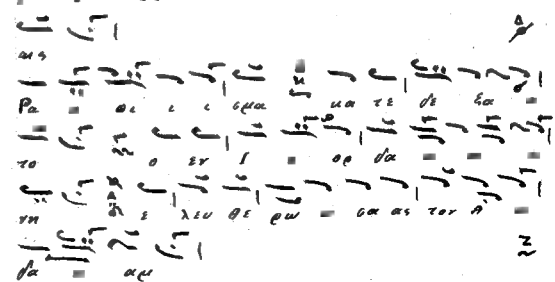 ως
Ρα πι ι ι σμα κα τε δε ξα
το ο εν Ι ορ δα
νη Ε λευ θε ρω σα ας τον Α
δα αμ